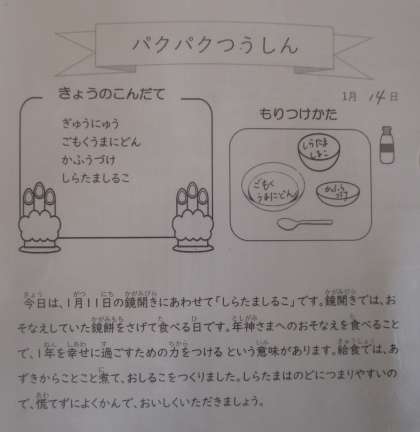 パクパクつうしん
1月 14 日
きょうのこんだて
ぎゅうにゅう
ごもくうまにどん
かふうづけ
しらたましるこ
もりつけかた
しらたま
しるこ
ごもく
うまにどん
かふう
づけ
今日は、1月11日の鏡開きにあわせて「しらたましるこ」です。鏡開きでは、お
そなえしていた鏡餅をさげて食べる日です。年神さまへのおそなえを食べること
で、1年を幸せに過ごすための力をつける という意味があります。給食では、あ
ずきからことこと煮て、おしるこをつくりました。しらたまはのどにつまりやすいの
で、慌てずによくかんで、おいしくいただきましょう。